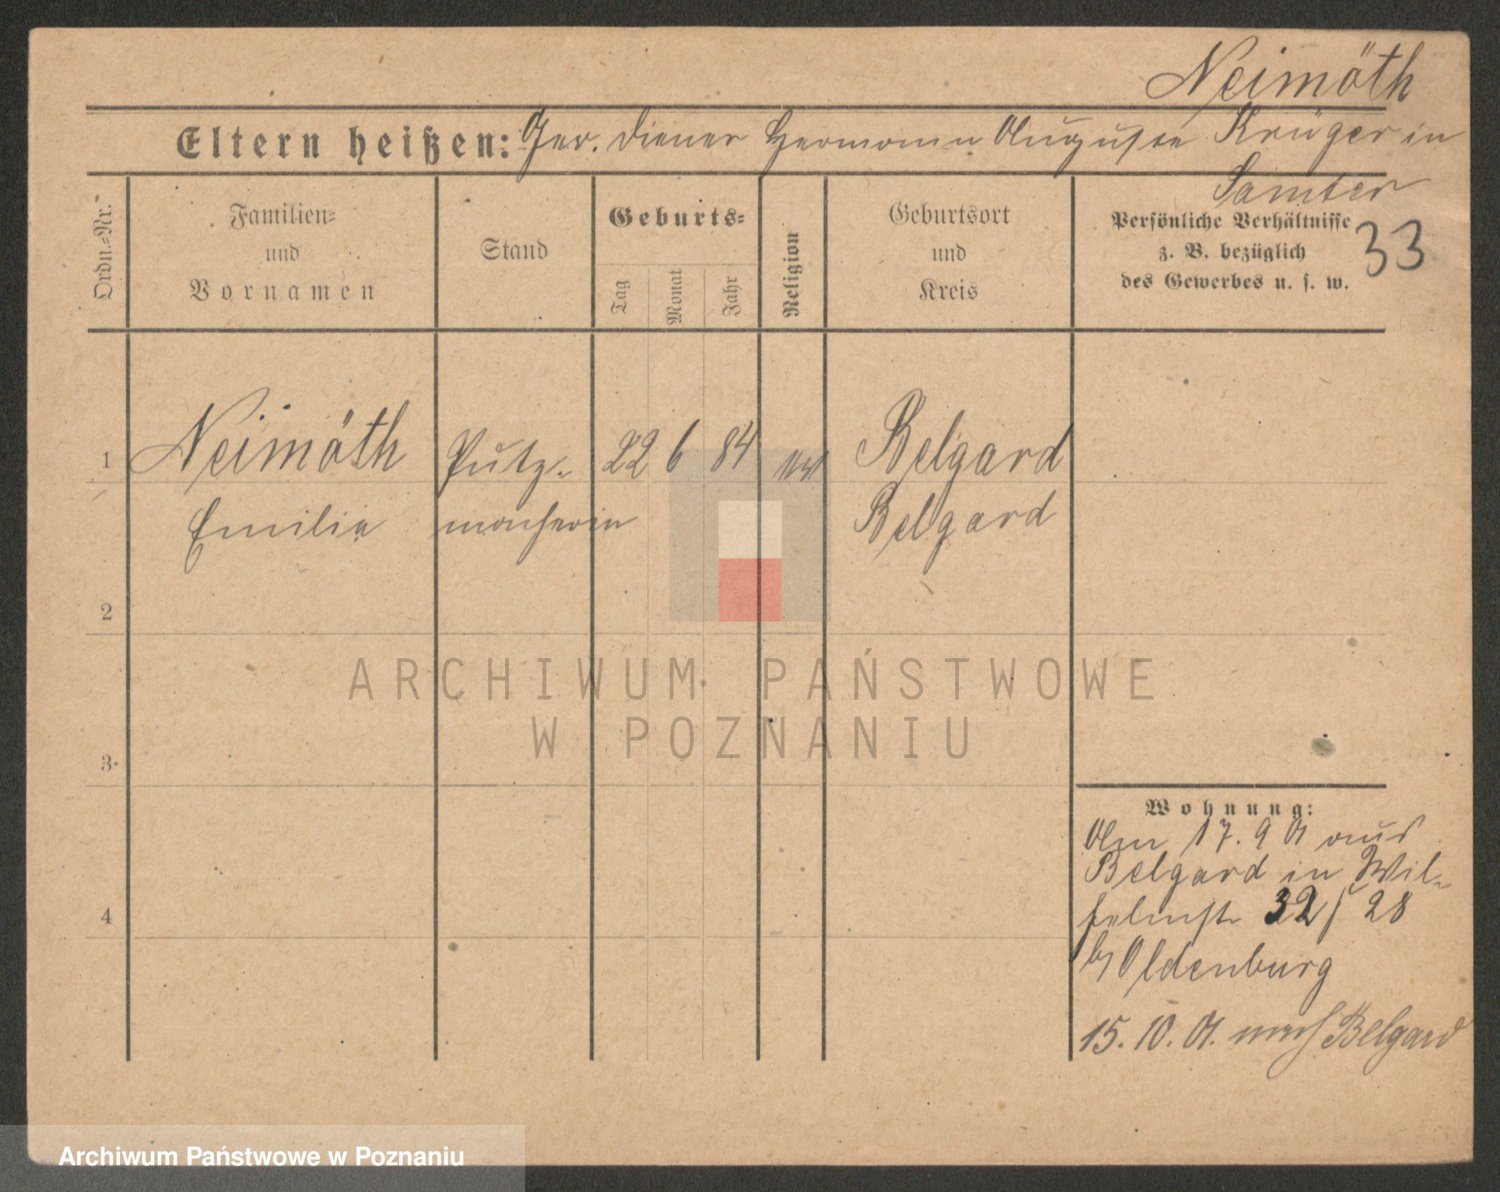 Neimöth
Eltern heißen: Ger. Diener Hermann Auguste Krüger in
Samter
33
Ordn.-Nr.
Familien-
und
Vornamen
Stand
Geburts-
Tag
Monat
Jahr
Religion
Geburtsort
und
Kreis
Persönliche Verhältnisse
z. B. bezüglich
des Gewerbes u. s. w.
1 Neimöth Putz- 22 6 84 Belgard
Emilie macherin Belgard
2
3
4
Wohnung:
Am 17. 9 01 aus
Belgard in Wil-
helmstr 32/ 28
by Oldenburg
15. 10. 01. nach Belgard
ARCHIWUM PAŃSTWOWE
W POZNANIU
Archiwum Państwowe w Poznaniu